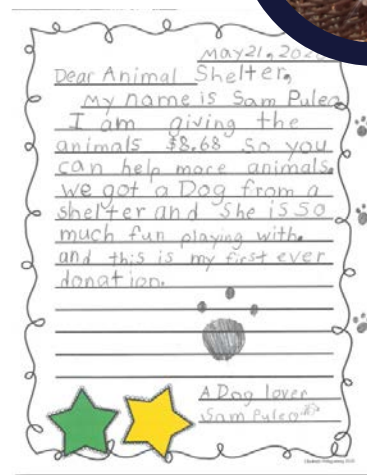 May 21, 202
Dear Animal Shelter,
My name is Sam Puleo
I am giving the
animals $8.68 So you
can help more animals.
we got a Dog from a
shelter and She is so
much fun playing with.
and this is my first ever
donation.
A Dog lover
Sam Puleo